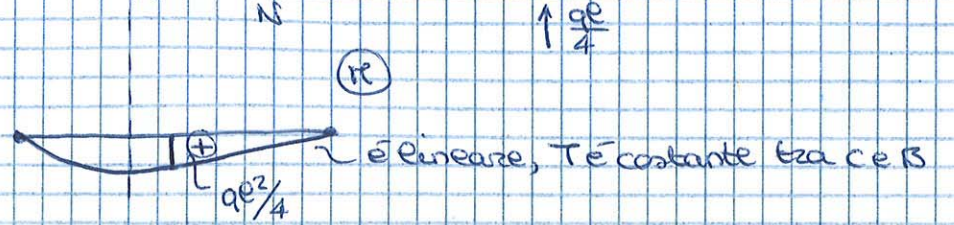 N
qℓ/4
M
+
è lineare, T è costante tra C e B
qℓ²/4